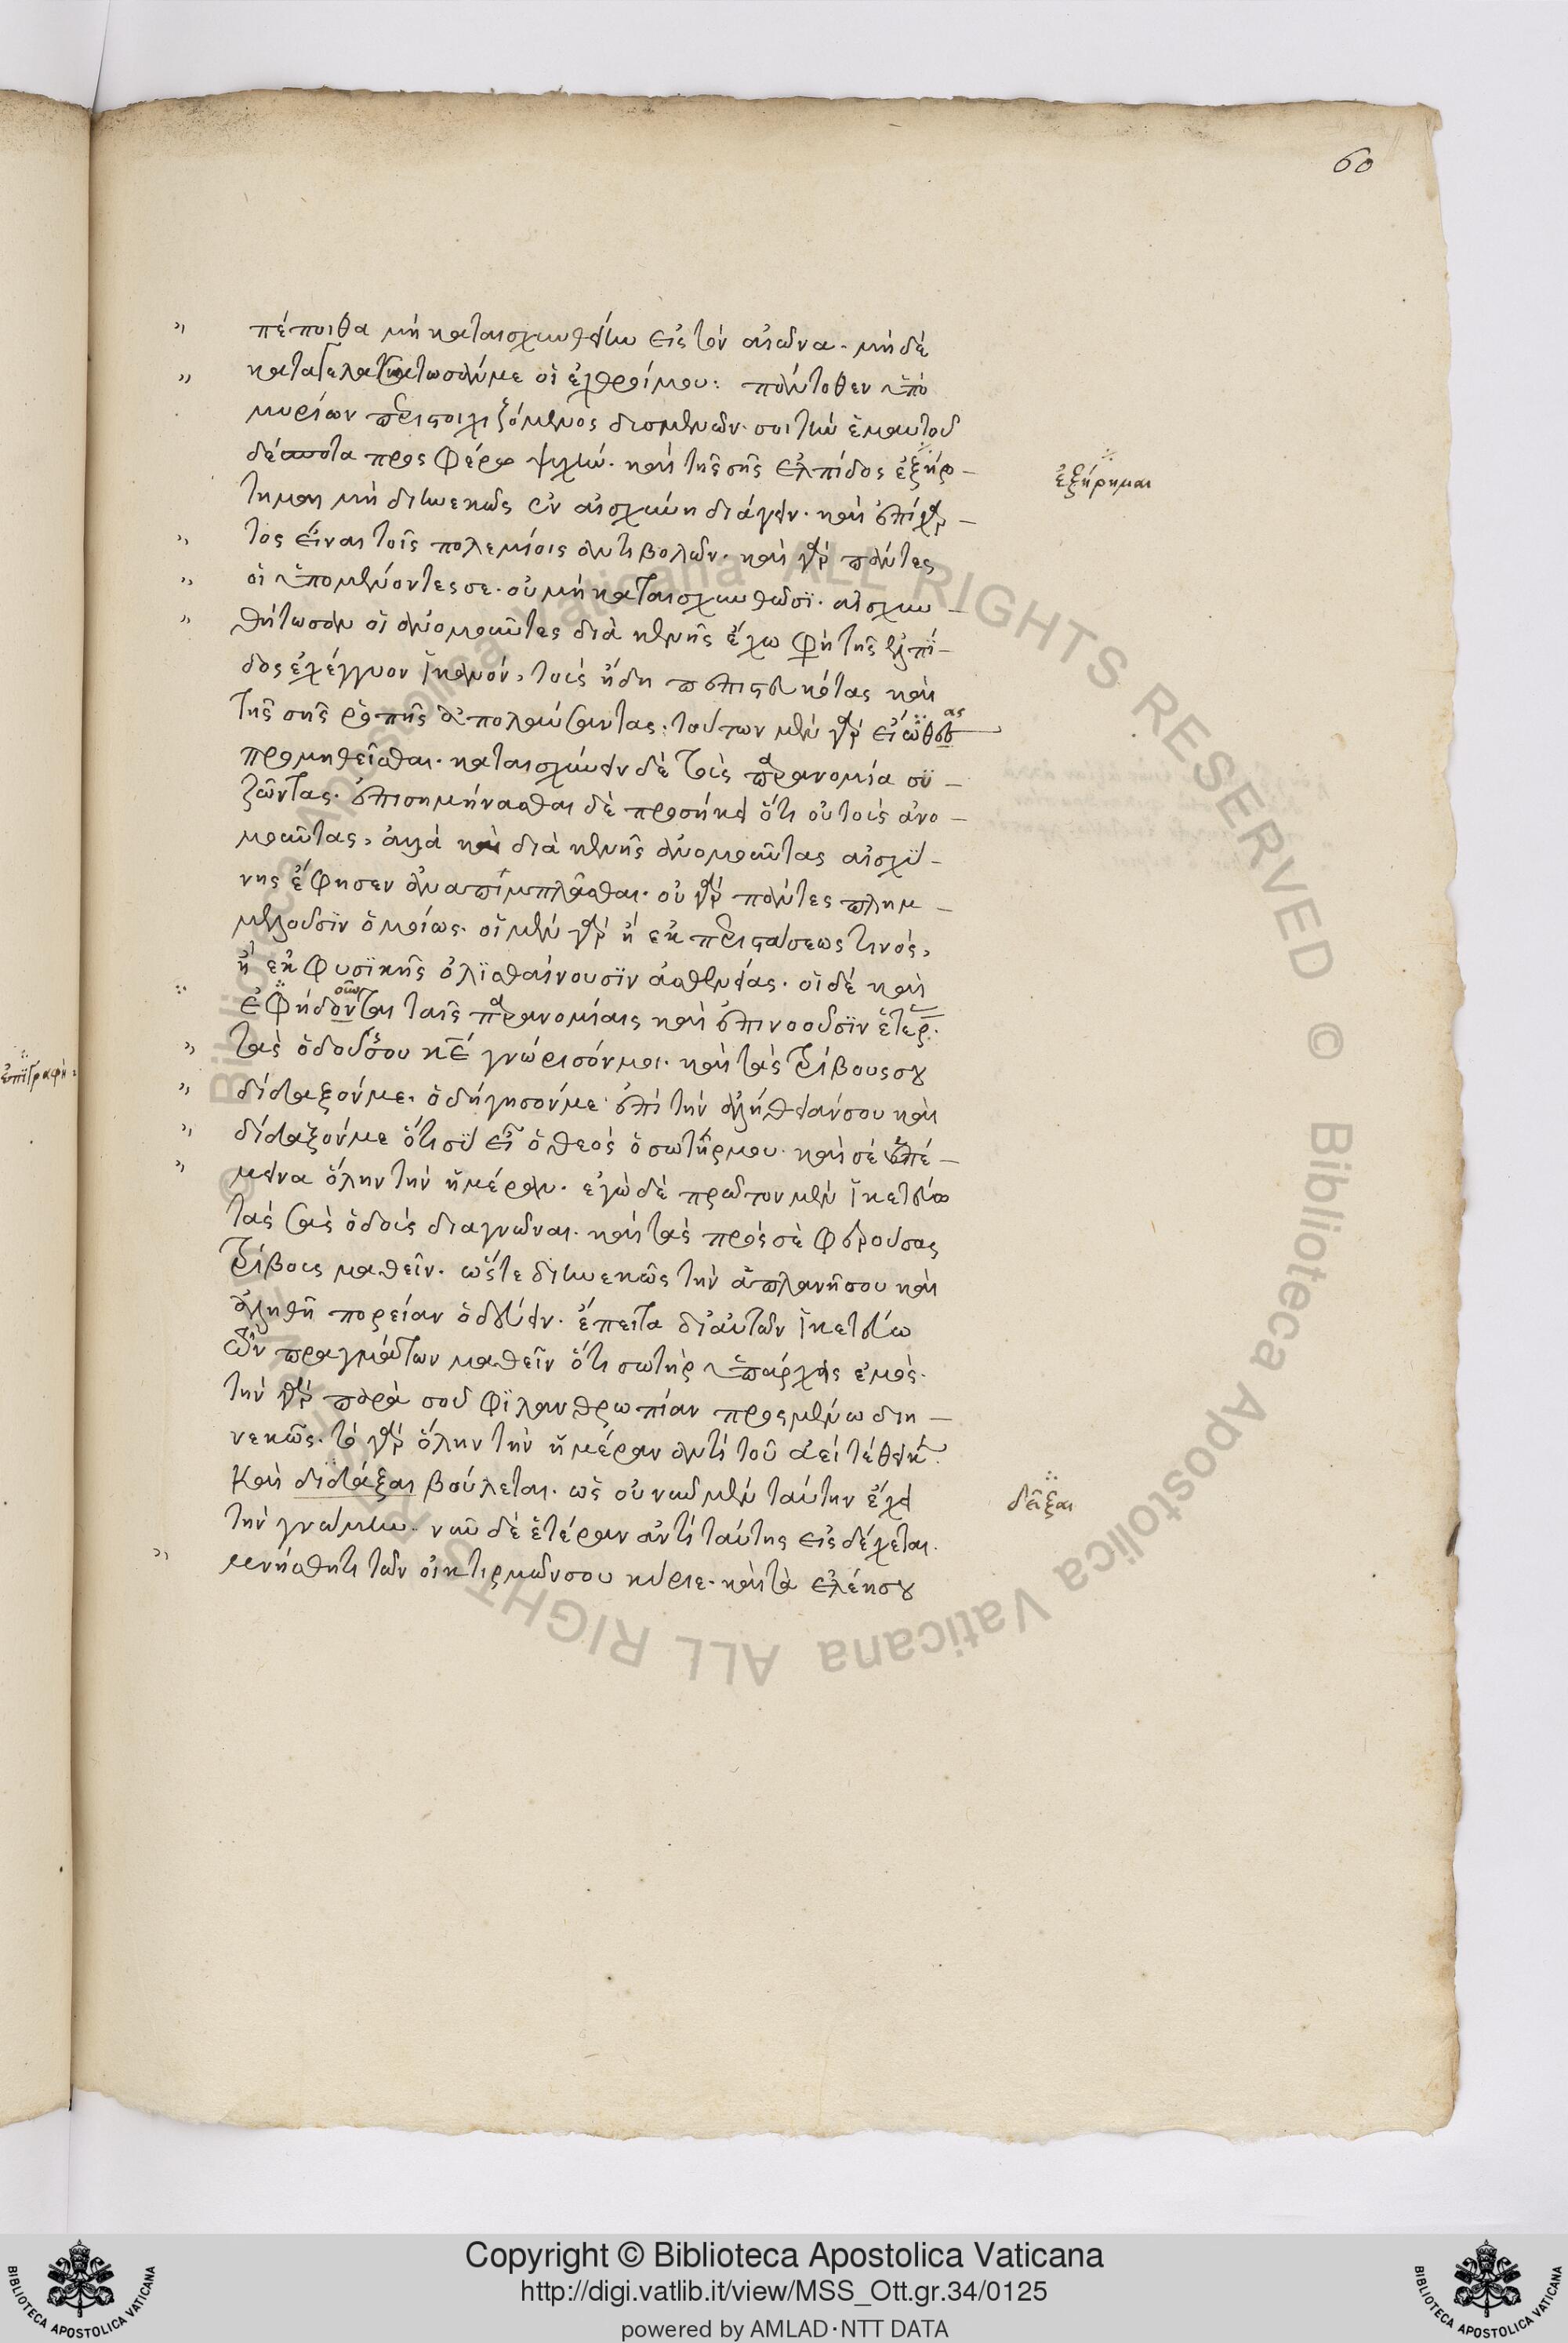 60
πέποιθα μὴ καταισχυνθείην εἰς τὸν αἰῶνα. μὴ δὲ
καταγελασάτωσάν με οἱ ἐχθροί μου: πάντοθεν ὑπὸ
μυρίων περιστοιχιζόμενος δυσμενῶν. σοὶ τὴν ἐμαυτοῦ
δέσποτα προσφέρω ψυχήν. καὶ τῆς σῆς ἐλπίδος ἐξήρ-
τημαι μὴ διηνεκῶς ἐν αἰσχύνῃ διάγειν. καὶ ἐπίχαρ-
τος εἶναι τοῖς πολεμίοις ἀντιβολῶν. καὶ γὰρ πάντες
οἱ ὑπομένοντές σε. οὐ μὴ καταισχυνθῶσϊ. αἰσχυν-
θήτωσαν οἱ ἀνομοῦντες διὰ κενῆς ἔχω φὴ τῆς ἐλπί-
δος ἐχέγγυον ἱκανόν, τοὺς ἤδη πεπιστευκότας καὶ
τῆς σῆς ῥοπῆς ἀπολαύσαντας. τούτων μὲν γὰρ εἴωθας
προμηθεῖσθαι. καταισχύνειν δὲ τοὺς παρανομία συ-
ζῶντας. ἐπισημήνασθαι δὲ προσήκει ὅτι οὐ τοὺς ἀνο-
μοῦντας, ἀλλὰ καὶ διὰ κενῆς ἀνομοῦντας αἰσχύ-
νης ἔφησεν ἀναπίμπλασθαι. οὐ γὰρ πάντες πλημ-
μελοῦσϊν ὁμοίως. οἱ μὲν γὰρ ἢ ἐκ περιστάσεως τινός,
ἢ ἐκ φυσϊκῆς ὀλϊσθαίνουσϊν ἀσθενείας. οἱ δὲ καὶ
ἐφήδονται ταῖς παρανομίαις καὶ ἐπινοοῦσϊν ἑτέρ.
τὰς ὁδούς σου κ̅ε̅ γνώρισόν μοι. καὶ τὰς τρίβους σου
δίδαξόν με. ὁδήγησόν με ἐπὶ τὴν ἀλήθειάν σου καὶ
δίδαξόν με ὅτι σὺ εἶ ὁ θεὸς ὁ σωτήρ μου. καὶ σὲ ὑπέ-
μεινα ὅλην τὴν ἡμέραν. ἐγὼ δὲ πρῶτον μὲν ἱκετεύω
τὰς σὰς ὁδοὺς διαγνῶναι. καὶ τὰς πρὸς σὲ φερούσας
τρίβους μαθεῖν. ὥστε διηνεκῶς τὴν ἀπλανῆ σου καὶ
ἀληθῆ πορείαν ὁδεύειν. ἔπειτα δι' αὐτῶν ἱκετεύω
τῶν πραγμάτων μαθεῖν ὅτι σωτὴρ ὑπάρχεις ἐμός.
τὴν γὰρ παρὰ σοῦ φϊλανθρωπίαν προσμένω διη-
νεκῶς. τὸ γὰρ ὅλην τὴν ἡμέραν ἀντὶ τοῦ ἀεὶ τέθεικ.
καὶ διδάξαι βούλεται. ὡς οὐ νῦν μὲν ταύτην ἔχει
τὴν γνώμην. νῦν δὲ ἑτέραν ἀντὶ ταύτης εἰσδέχεται.
μνήσθητι τῶν οἰκτιρμῶν σου κύριε. καὶ τὰ ἐλέη σου
ἐξήρημαι
δεῖξαι
ἐπϊγραφὴ:
© Biblioteca Apostolica Vaticana ALL RIGHTS RESERVED © Biblioteca Apostolica Vaticana ALL RIGHTS RESERVED
Copyright © Biblioteca Apostolica Vaticana
http://digi.vatlib.it/view/MSS_Ott.gr.34/0125
powered by AMLAD·NTT DATA
BIBLIOTECA APOSTOLICA VATICANA
BIBLIOTECA APOSTOLICA VATICANA